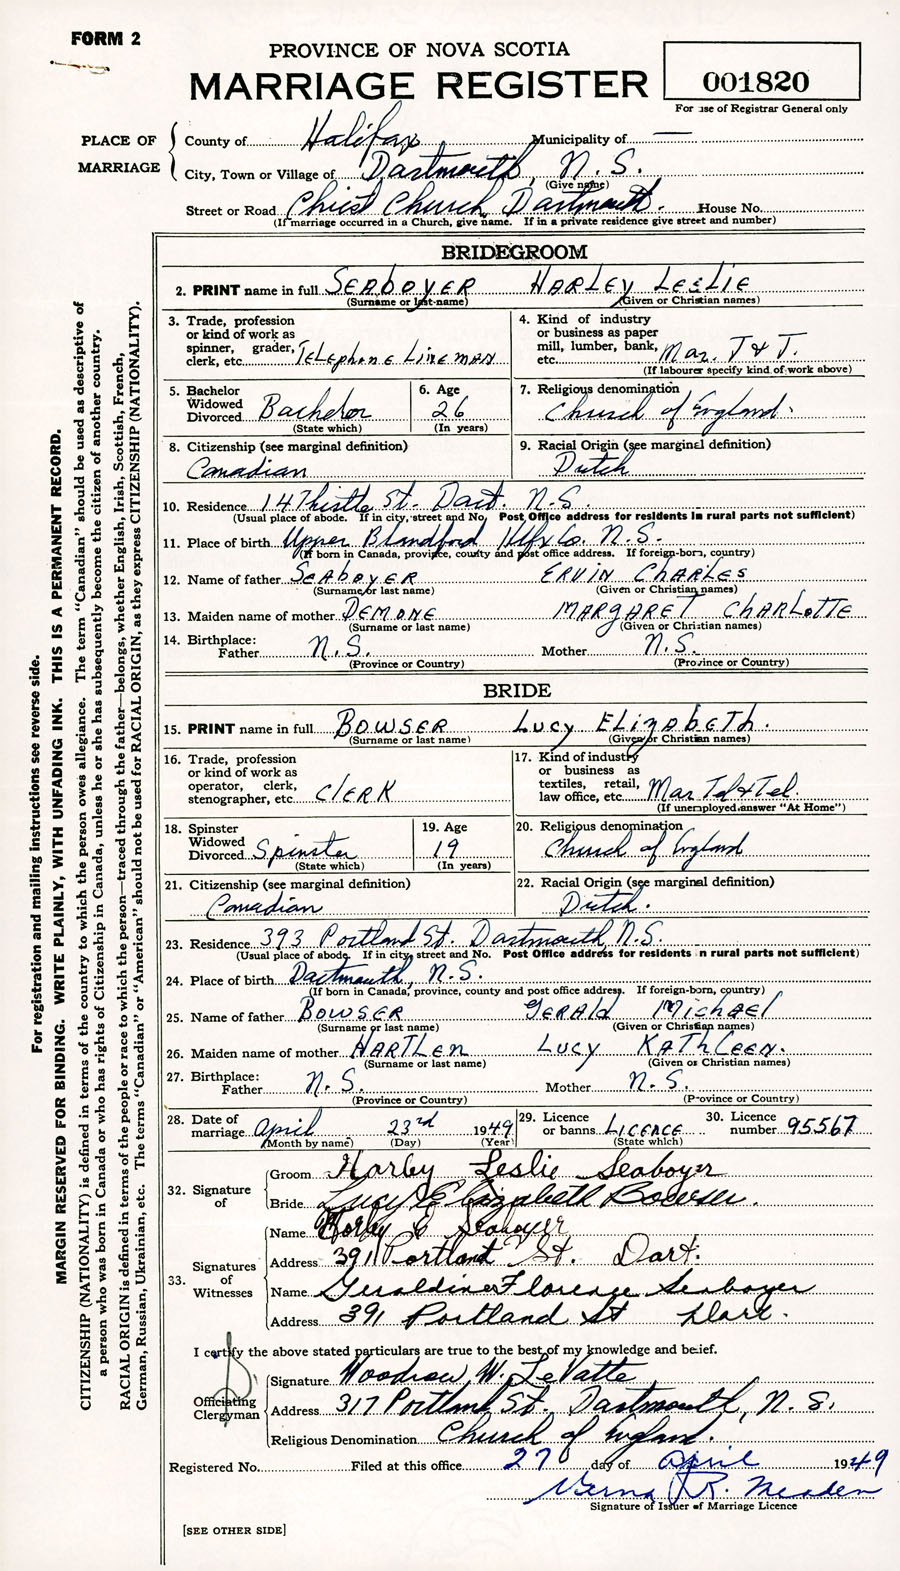 FORM 2
PROVINCE OF NOVA SCOTIA
MARRIAGE REGISTER
001820
For use of Registrar General only
PLACE OF MARRIAGE
County of Halifax Municipality of —
City, Town or Village of Dartmouth, N.S.
(Give name)
Street or Road Christ Church, Dartmouth. House No.
(If marriage occurred in a Church, give name. If in a private residence give street and number)
BRIDEGROOM
2. PRINT name in full SEABOYER HARLEY LESLIE
(Surname or last name) (Given or Christian names)
3. Trade, profession or kind of work as spinner, grader, clerk, etc. TELEPHONE LINEMAN
4. Kind of industry or business as paper mill, lumber, bank, etc. Mar. T & T.
(If labourer specify kind of work above)
5. Bachelor Widowed Divorced Bachelor
(State which)
6. Age 26
(In years)
7. Religious denomination Church of England.
8. Citizenship (see marginal definition) Canadian
9. Racial Origin (see marginal definition) Dutch
10. Residence 14 Thistle St. Dart. N.S.
(Usual place of abode. If in city, street and No. Post Office address for residents in rural parts not sufficient)
11. Place of birth Upper Blandford Hfx Co. N.S.
(If born in Canada, province, county and post office address. If foreign-born, country)
12. Name of father SEABOYER ERVIN CHARLES
(Surname or last name) (Given or Christian names)
13. Maiden name of mother DEMONE MARGARET CHARLOTTE
(Surname or last name) (Given or Christian names)
14. Birthplace: Father N.S. Mother N.S.
(Province or Country) (Province or Country)
BRIDE
15. PRINT name in full BOWSER LUCY ELIZABETH.
(Surname or last name) (Given or Christian names)
16. Trade, profession or kind of work as operator, clerk, stenographer, etc. CLERK
17. Kind of industry or business as textiles, retail, law office, etc. Mar Tel & Tel.
(If unemployed answer "At Home")
18. Spinster Widowed Divorced Spinster
(State which)
19. Age 19
(In years)
20. Religious denomination Church of England
21. Citizenship (see marginal definition) Canadian
22. Racial Origin (see marginal definition) Dutch.
23. Residence 393 Portland St. Dartmouth, N.S.
(Usual place of abode. If in city, street and No. Post Office address for residents in rural parts not sufficient)
24. Place of birth Dartmouth, N.S.
(If born in Canada, province, county and post office address. If foreign-born, country)
25. Name of father BOWSER GERALD MICHAEL
(Surname or last name) (Given or Christian names)
26. Maiden name of mother HARTLEN LUCY KATHLEEN.
(Surname or last name) (Given or Christian names)
27. Birthplace: Father N.S. Mother N.S.
(Province or Country) (Province or Country)
28. Date of marriage April 23rd 1949
(Month by name) (Day) (Year)
29. Licence or banns LICENCE
(State which)
30. Licence number 95567
32. Signature of
Groom Harley Leslie Seaboyer
Bride Lucy Elizabeth Bowser.
33. Signatures of Witnesses
Name Seaboyer
Address 391 Portland St. Dart.
Name Geraldine Florence Seaboyer
Address 391 Portland St Dart.
I certify the above stated particulars are true to the best of my knowledge and belief.
Officiating Clergyman
Signature Woodrow W. LeVatte
Address 317 Portland St. Dartmouth, N.S.
Religious Denomination Church of England.
Registered No. Filed at this office 27 day of April 1949
Verna R. Meaden
Signature of Issuer of Marriage Licence
[SEE OTHER SIDE]
For registration and mailing instructions see reverse side.
MARGIN RESERVED FOR BINDING. WRITE PLAINLY, WITH UNFADING INK. THIS IS A PERMANENT RECORD.
CITIZENSHIP (NATIONALITY) is defined in terms of the country to which the person owes allegiance. The term "Canadian" should be used as descriptive of
a person who was born in Canada or who has rights of Citizenship in Canada, unless he or she has subsequently become the citizen of another country.
RACIAL ORIGIN is defined in terms of the people or race to which the person—traced through the father—belongs, whether English, Irish, Scottish, French,
German, Russian, Ukrainian, etc. The terms "Canadian" or "American" should not be used for RACIAL ORIGIN, as they express CITIZENSHIP (NATIONALITY).